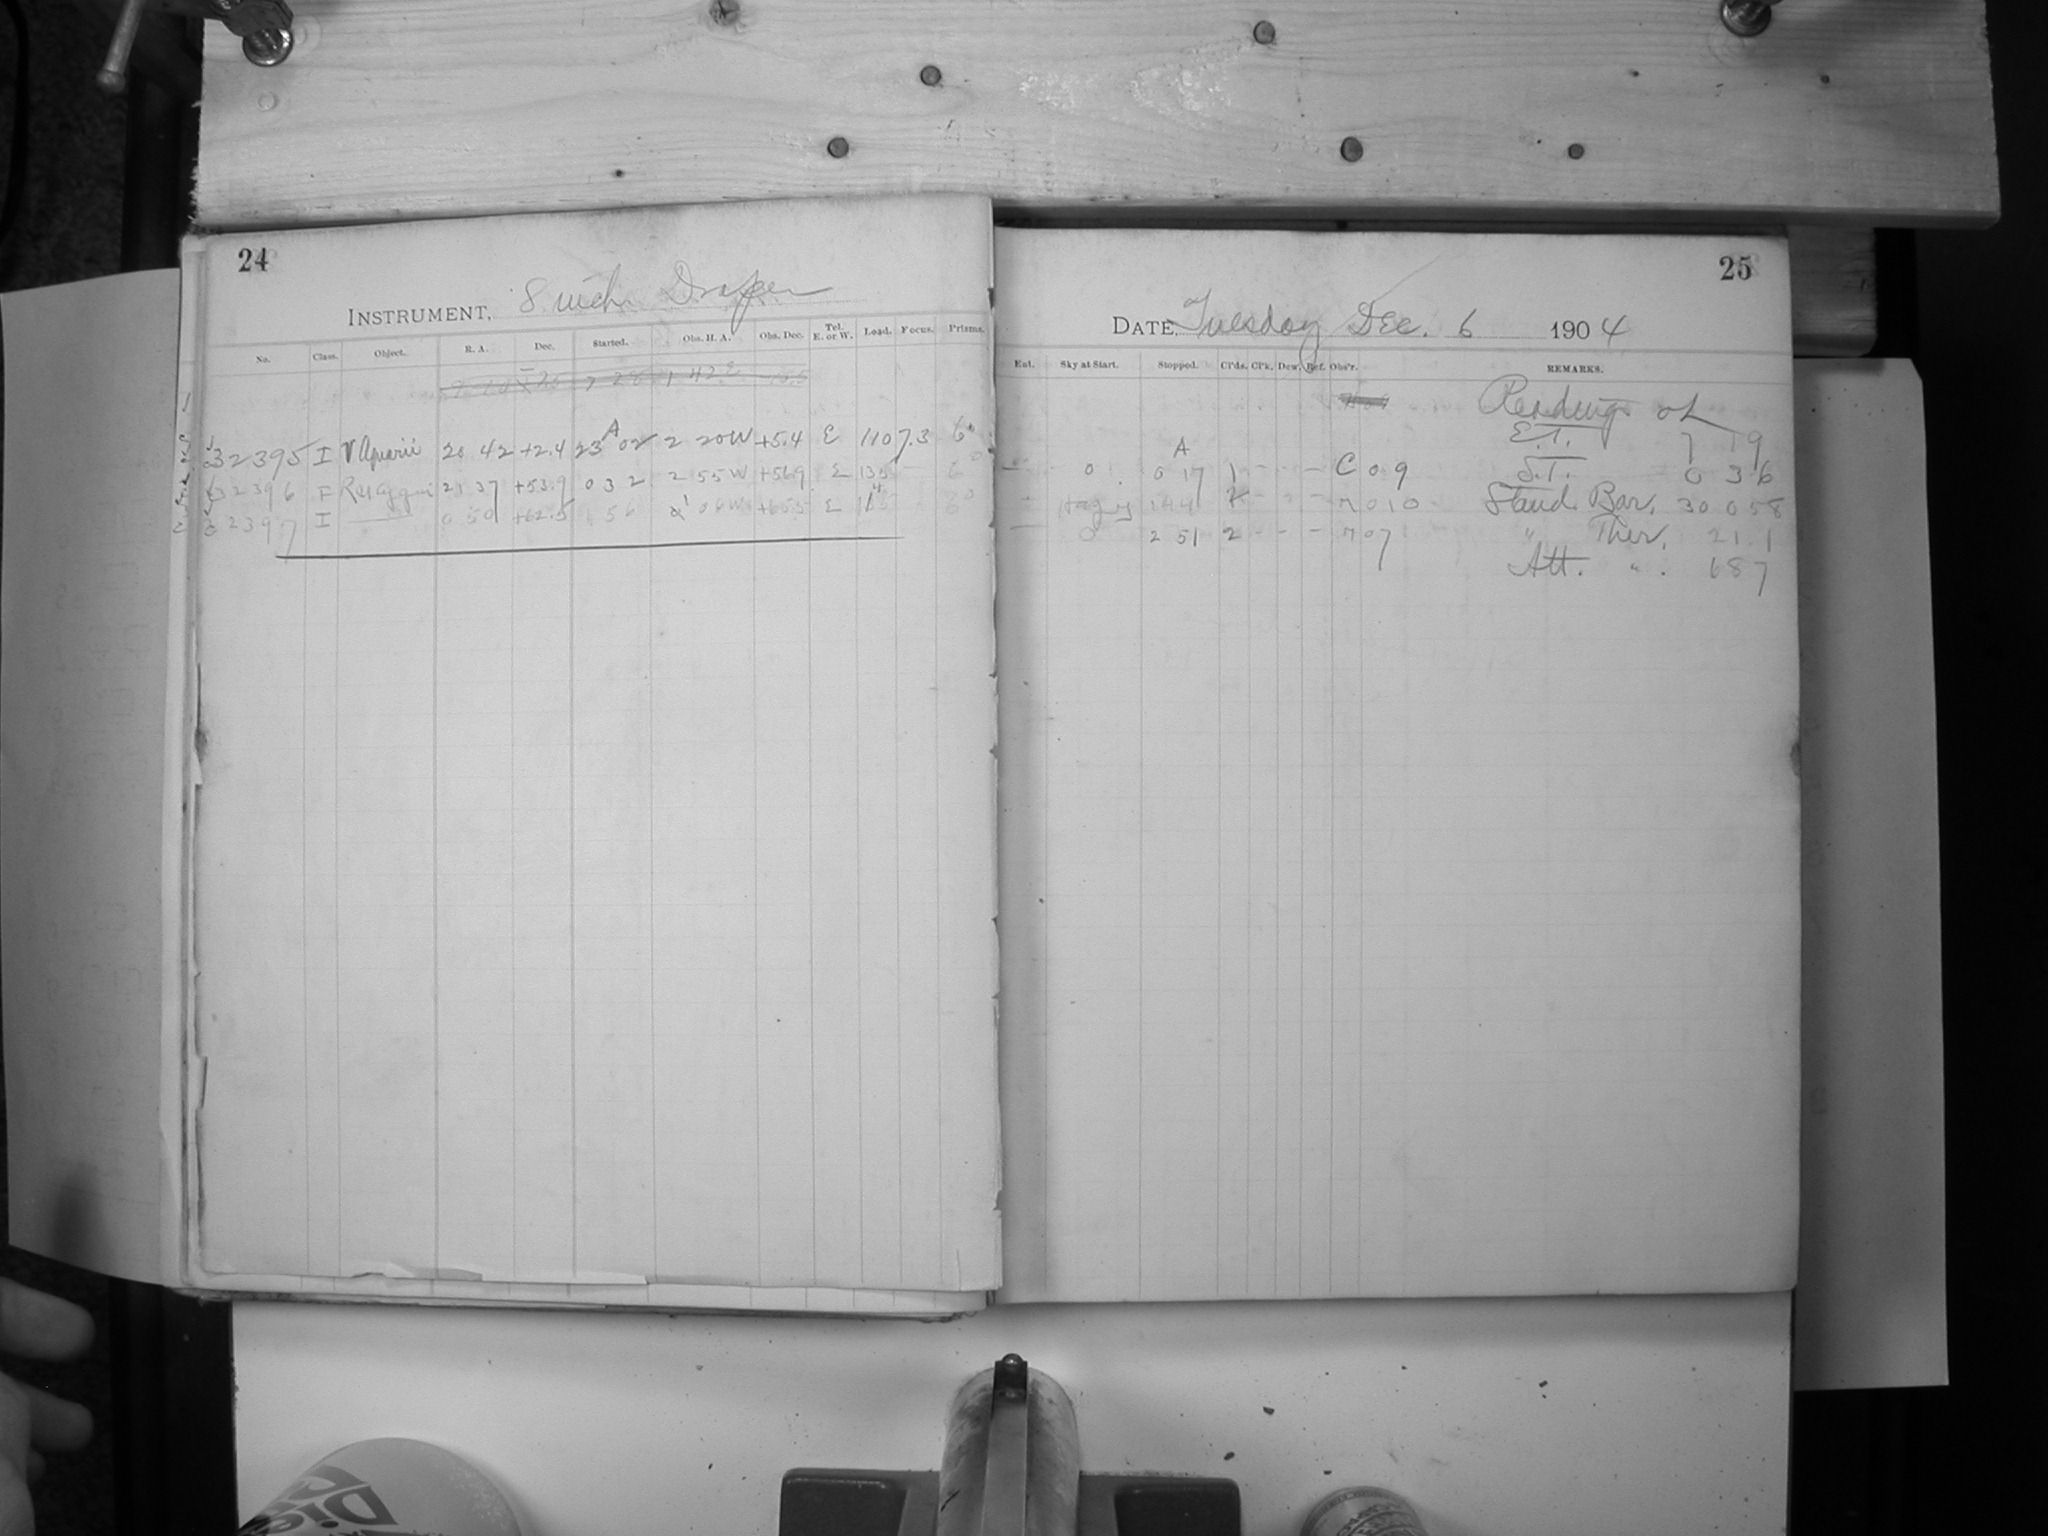 24
INSTRUMENT, 8 inch Draper
No. Class. Object. R. A. Dec. Started. Obs. H. A. Obs. Dec. Tel. E. or W. Load. Focus. Prisms.
32395 I V Aquarii 20 42 +2.4 23 A 02 2 20W +5.4 E 110 7.3 6°
32396 F 21 37 +53.9 0 32 2 55W +56.9 E 135 - 6°
32397 I 0 50 +62.5 1 56 1 06W +65.5 E 6°
25
DATE, Tuesday Dec. 6 1904
Ent. Sky at Start. Stopped. Cl'ds. Cl'k. Dew. Ref. Obs'r. REMARKS.
Readings of
E.T. 7 19
A
— 0 0 17 1 - - - C 0 9 S.T. 0 36
Hazy 1 44 - - - 10 Stand. Bar. 30 058
— 0 2 51 2 - - - 07 " Ther. 21.1
Att. " . 687
Die